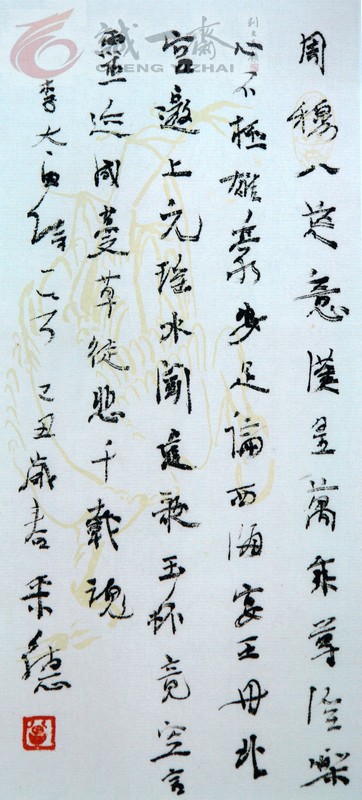 誠一齋
CHENG YI ZHAI
周穆八荒意漢皇萬乘尊淫樂
心不極雄豪安足論西海宴王母北
宮邀上元瑤水聞遺歌玉杯竟空言
靈迹成蔓草徒悲千載魂
李太白詩一首己丑歲書